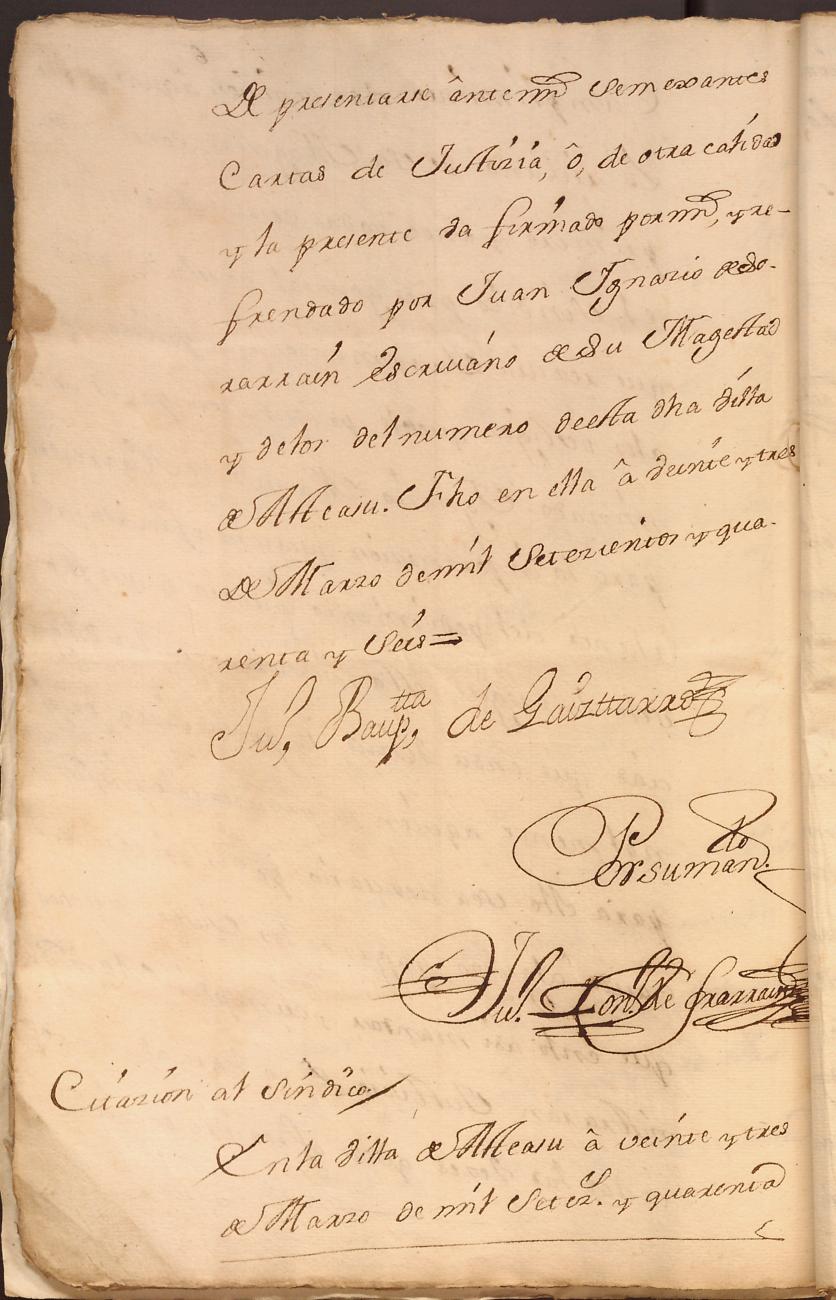 De presentarse ântemi Semexantes
Cartas de Justizia, ô, de otra calidad
y la presente da firmado pormi, y re-
frendado por Juan Ignazio de So-
rarrain Escriuano de Su Magestad
y delos del numero deesta dha Villa
de Alteasu. Fho en ella â veinte y tres
De Marzo demil Setezientos y qua-
renta y Seis=
Ju, Bauptta, de Gaizttarro
Por suman.do
Ju.
Citazion al Sindico
Enla Villa de Alteasu â veinte y tres
de Marzo demil Setez.s y quarenta